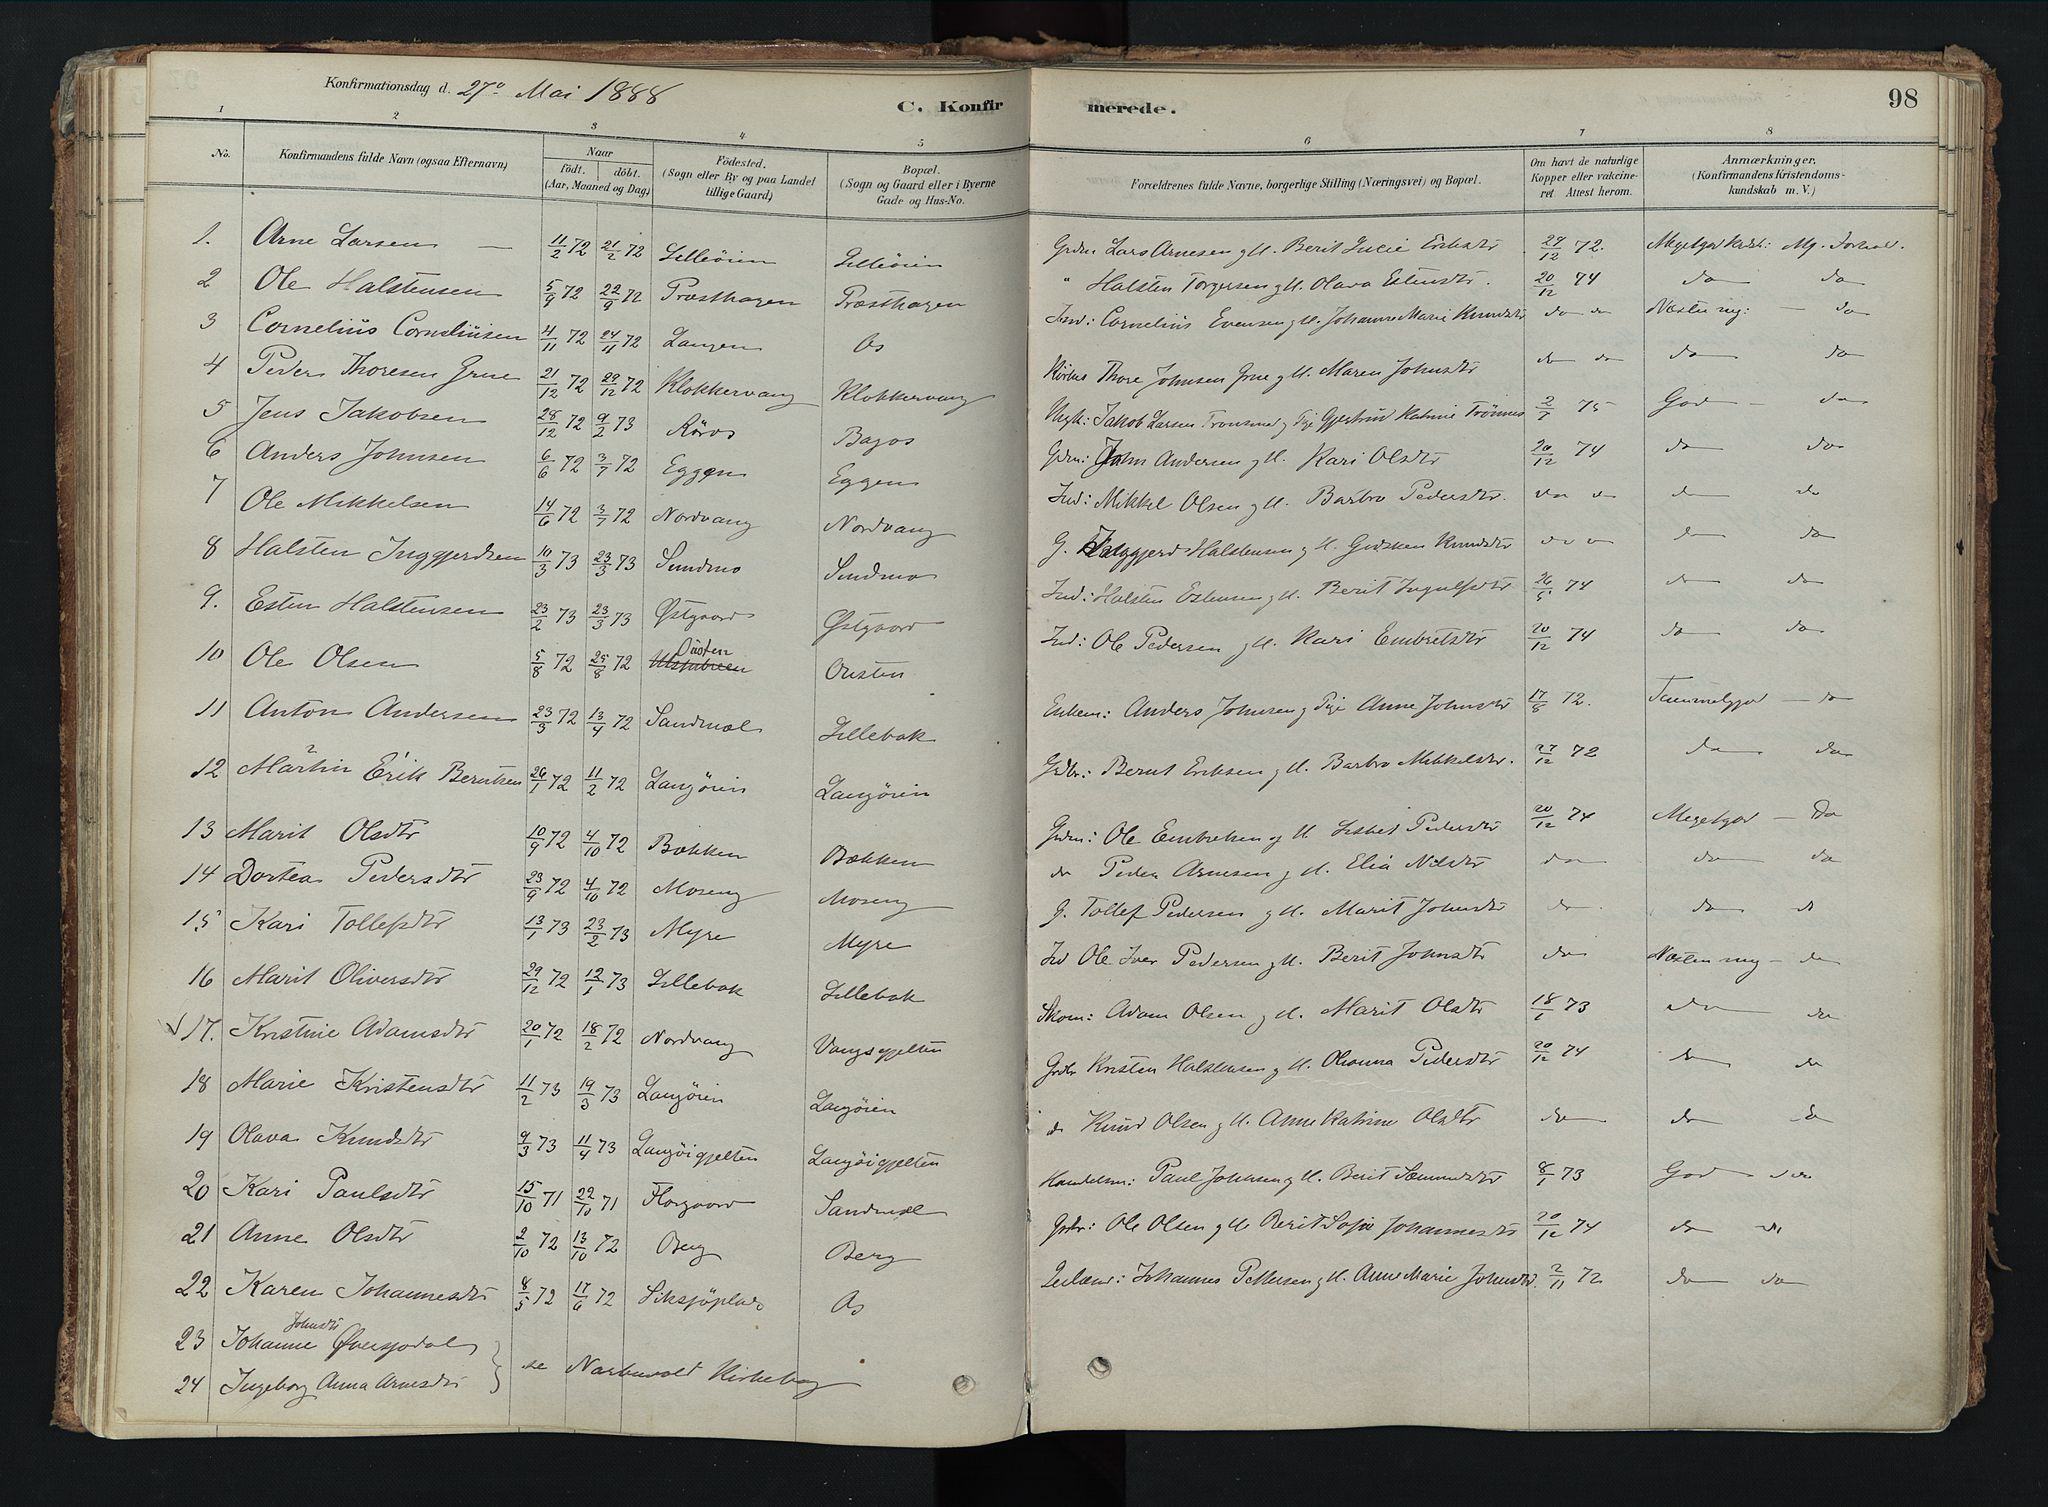 Konfirmationsdag d. 27de Mai 1888
C. Konfirmerede.
98
1 2 3 4 5 6 7 8
No. Konfirmandens fulde Navn (ogsaa Efternavn) Naar födt. döbt. (Aar, Maaned og Dag) Födested. (Sogn eller By og paa Landet tillige Gaard) Bopæl. (Sogn og Gaard eller i Byerne Gade og Hus-No. Forældrenes fulde Navne, borgerlige Stilling (Næringsvei) og Bopæl. Om havt de naturlige Kopper eller vakcineret. Attest herom. Anmærkninger. (Konfirmandens Kristendomskundskab m. V.)
1. Arne Larsen 11/2 72 21/2 72 Lilleöien Lilleöien Grdm Lars Arnesen g H. Berit Lucie Eriksdtr 29/12 72. Megetgod Mg. Forhold.
2 Ole Halstensen 5/9 72 22/9 72 Præsthagen Præsthagen " Halsten Torgersen g H. Olava Estensdtr. 20/12 74 do do
3 Cornelius Corneliusen 4/11 72 24/11 72 Langen Os Ind: Cornelius Evensen g H. Johanne Marie Knudsdtr do do Næsten mg: - do
4 Peder Thoresen Grue 21/12 72 29/12 72 Klokkervang Klokkervang Thore Johnsen Grue g H. Maren Johnsdtr do do do do
5 Jens Jakobsen 28/12 72 9/2 73 Röros Bagos Ungk: Jakob Larsen Pige Gjertrud Katrine Trönnes 75 God - do
6 Anders Johnsen 6/6 72 3/7 72 Eggen Eggen Grdm: John Andersen g H. Kari Olsdtr 20/12 74 do do
7 Ole Mikkelsen 14/6 72 3/7 72 Nordvang Nordvang Ind: Mikkel Olsen g H. Barbro Pedersdtr. do do do do
8 Halsten Inggjerdsen 10/3 73 23/3 73 Sundmo Sundmo G. Inggjerd Halstensen g H. Gudsken Knudsdtr do do do
9. Esten Halstensen 23/2 73 23/3 73 Østgaard Østgaard Ind: Halsten Estensen g H. Berit Ingulfsdtr 26/5 74 do do
10 Ole Olsen 5/8 72 25/8 72 Ousten Ousten Ind: Ole Pedersen g H. Kari Embretsdtr 20/12 74 do do
11 Anton Andersen 23/3 72 13/4 72 Sandmæl Lillebak Enkem: Anders Johnsen g Pige Anne Johnsdtr 17/8 72. Temmeliggod - do
12 Martin Erik Berntsen 26/1 72 11/2 72 Langöien Langöien Grdbr: Bernt Eriksen g H. Barbro Mikkelsdtr. 27/12 72 do do
13 Marit Olsdtr 10/9 72 4/10 72 Bækken Bækken Grdm: Ole Embretsen og H Lisbet Pedersdtr 20/12 74 Megetgod - Do
14 Dortea Pedersdtr 23/9 72 4/10 72 Moseng Moseng do Peder Arnesen g H. Elia Nilsdtr do do do
15 Kari Tollefsdtr 13/1 73 23/2 73 Myre Myre G. Tollef Pedersen g H. Marit Johnsdtr do do d
16 Marit Oliversdtr 29/12 72 12/1 73 Lillebak Lillebak Ind Ole Iver Pedersen g H. Berit Johnsdtr do Næsten mg - do
17. Kristine Adamsdtr 20/1 72 18/2 72 Nordvang Vangsgjelten Skom: Adam Olsen g H. Marit Olsdtr 73 do do
18 Marie Kristensdtr 11/2 73 19/3 73 Langöien Langöien Grdbr Kristen Halstensen g H. Oleanna Pedersdtr 20/12 74 do do
19 Olava Knudsdtr 9/3 73 11/4 73 Langöigjelten Langöigjelten do Knud Olsen g H. Anne Katrine Olsdtr do do do
20 Kari Paulsdtr 15/10 71 22/10 71 Florgaard Sandmæl Handelsm: Paul Johnsen g H. Berit Sæmundsdtr 8/1 73 God do
21 Anne Olsdtr 2/10 72 13/10 72 Berg Berg Grdbr: Ole Olsen g H Berit Sofie Johannesdtr 20/12 74 do do
22 Karen Johannesdtr 8/5 72 17/6 72 Siksjöplads Os Leilænd: Johannes Pettersen g H. Anne Marie Johnsdtr. 2/11 72 do do
23 Johanne Johnsdtr Øversjodal
24 Ingeborg Anna Arnesdtr } se Narbuvold Kirkebog